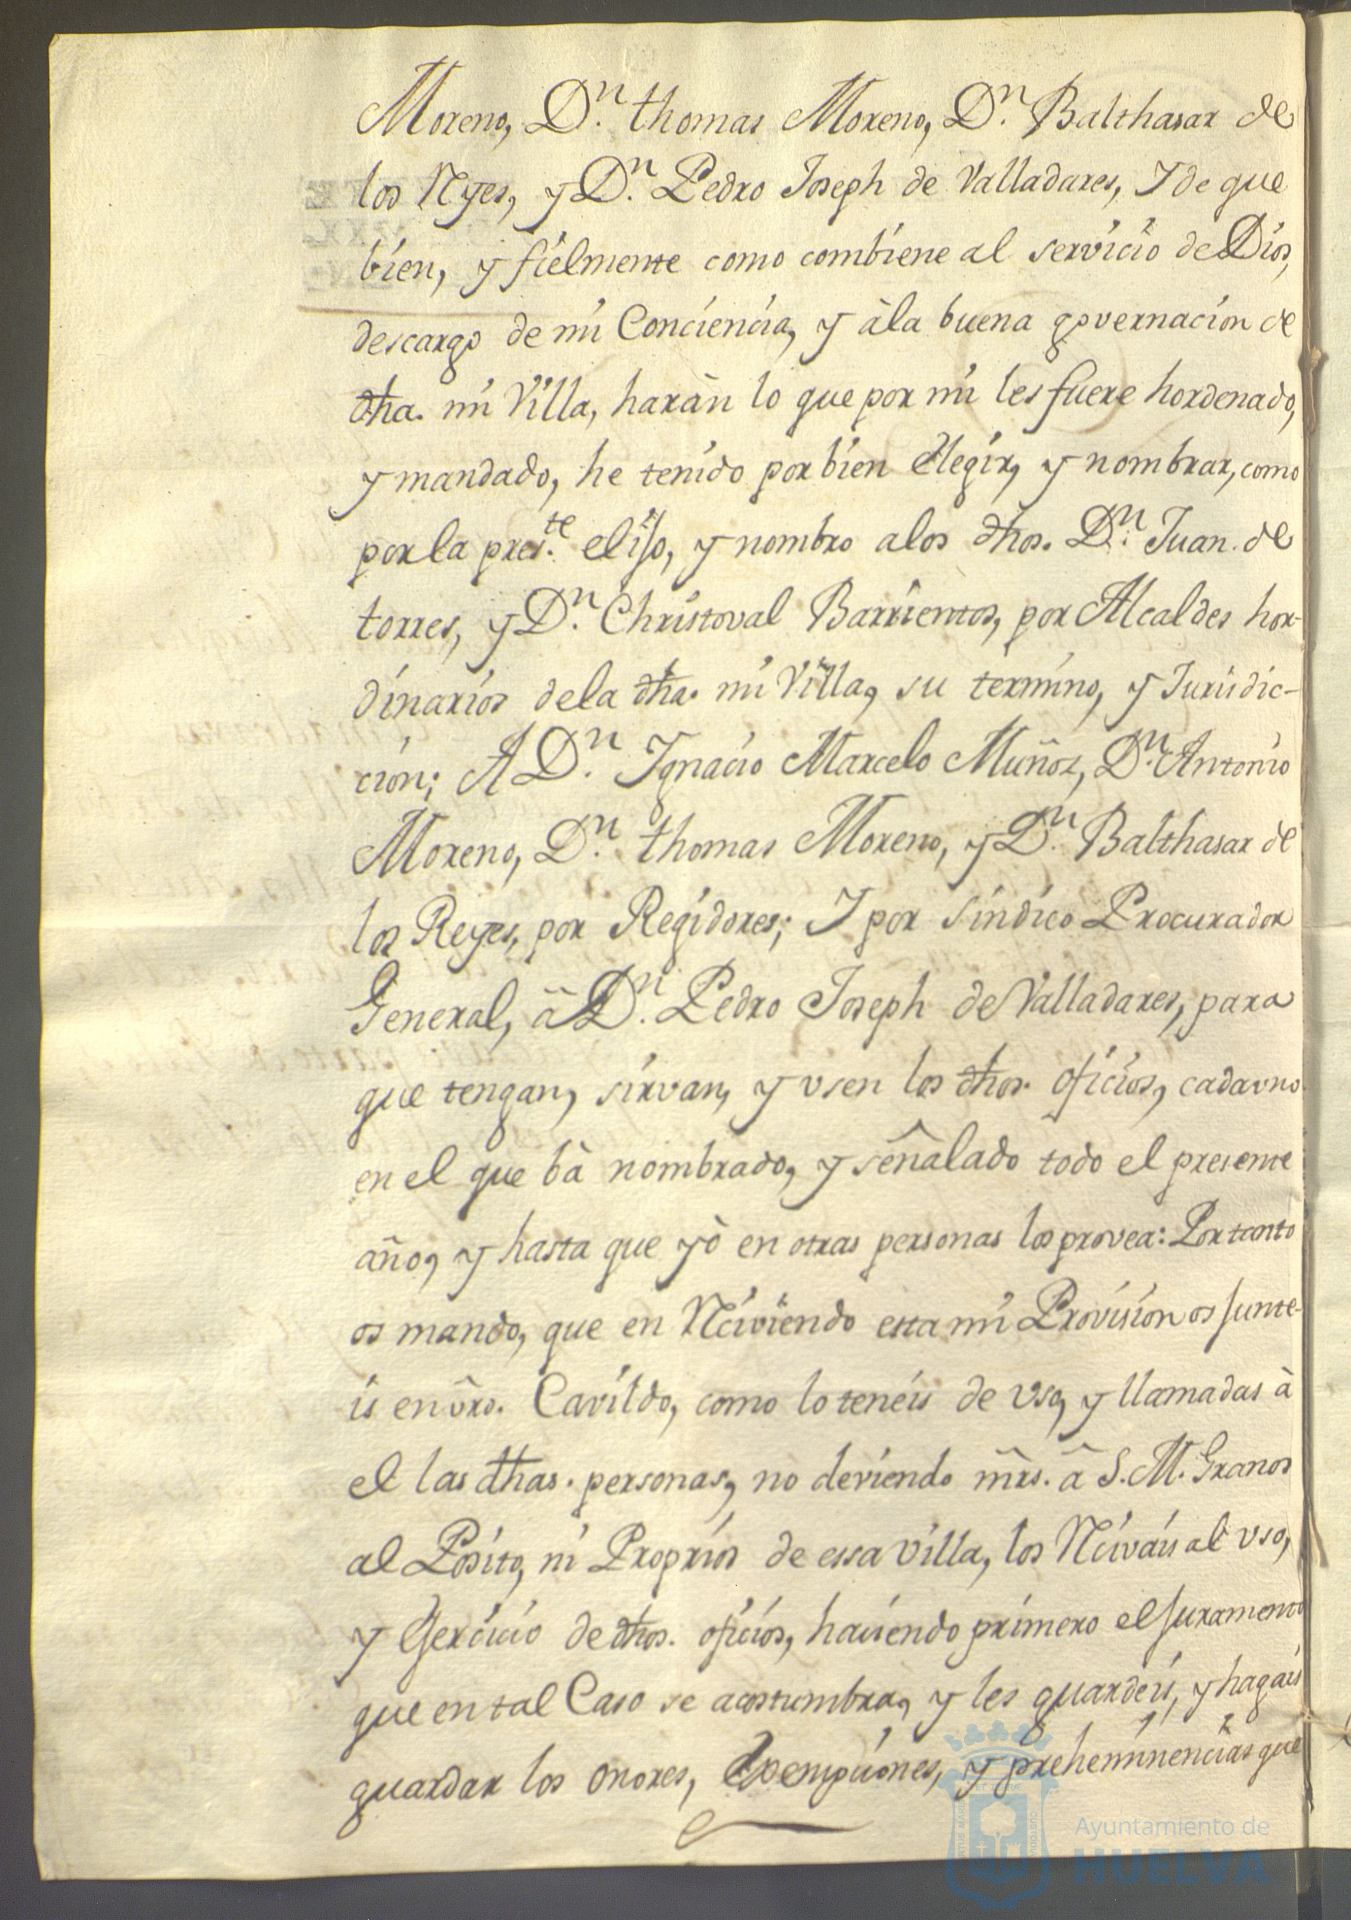 Moreno, Dn. thomas Moreno, Dn. Balthasar de
los Ryes, y Dn. Pedro Joseph de Valladares, Y de que
bien, y fielmente como combiene al servicio de Dios,
descargo de mi Conciencia, y àla buena governacion de
dha. mi Villa, haràn lo que por mi les fuere hordenado,
y mandado, he tenido por bien Elegir, y nombrar, como
por la preste. elijo, y nombro alos dhos. Dn. Juan de
torres, y Dn. Christoval Barrientos, por Alcaldes hor-
dinarios dela dha. mi Villa, su termino, y Juridic-
cion; A Dn. Ignacio Marcelo Muñoz, Dn. Antonio
Moreno, Dn. thomas Moreno, y Dn. Balthasar de
los Reyes, por Regidores; Y por sindico Procurador
General, â Dn. Pedro Joseph de Valladares, para
que tengan, sirvan, y vsen los dhos. oficios, cadavno
en el que bà nombrado, y señalado todo el presente
año, y hasta que yò en otras personas los provea: Por tanto
os mando, que en Reciviendo esta mi Provision os junte-
is en vro. Cavildo, como lo teneis de vso, y llamadas à
el las dhas. personas, no deviendo mrs. â S. M. Granos
al Posito, ni Proprios de essa villa, los Recivais al vso,
y Exercicio de dhos. oficios, haciendo primero el juramento
que en tal Caso se acostumbra, y les guardeis, y hagais
guardar los onores, Exempciones, y preheminencias que
Ayuntamiento de
HUELVA